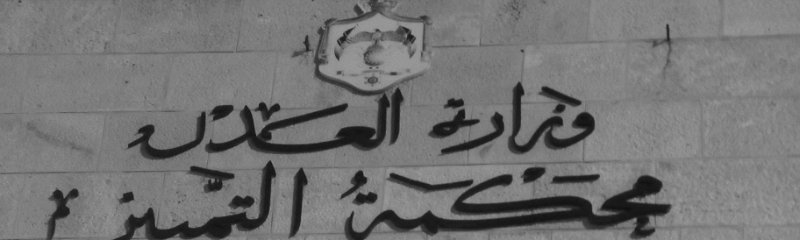 وزارة العدل
محكمة التمييز